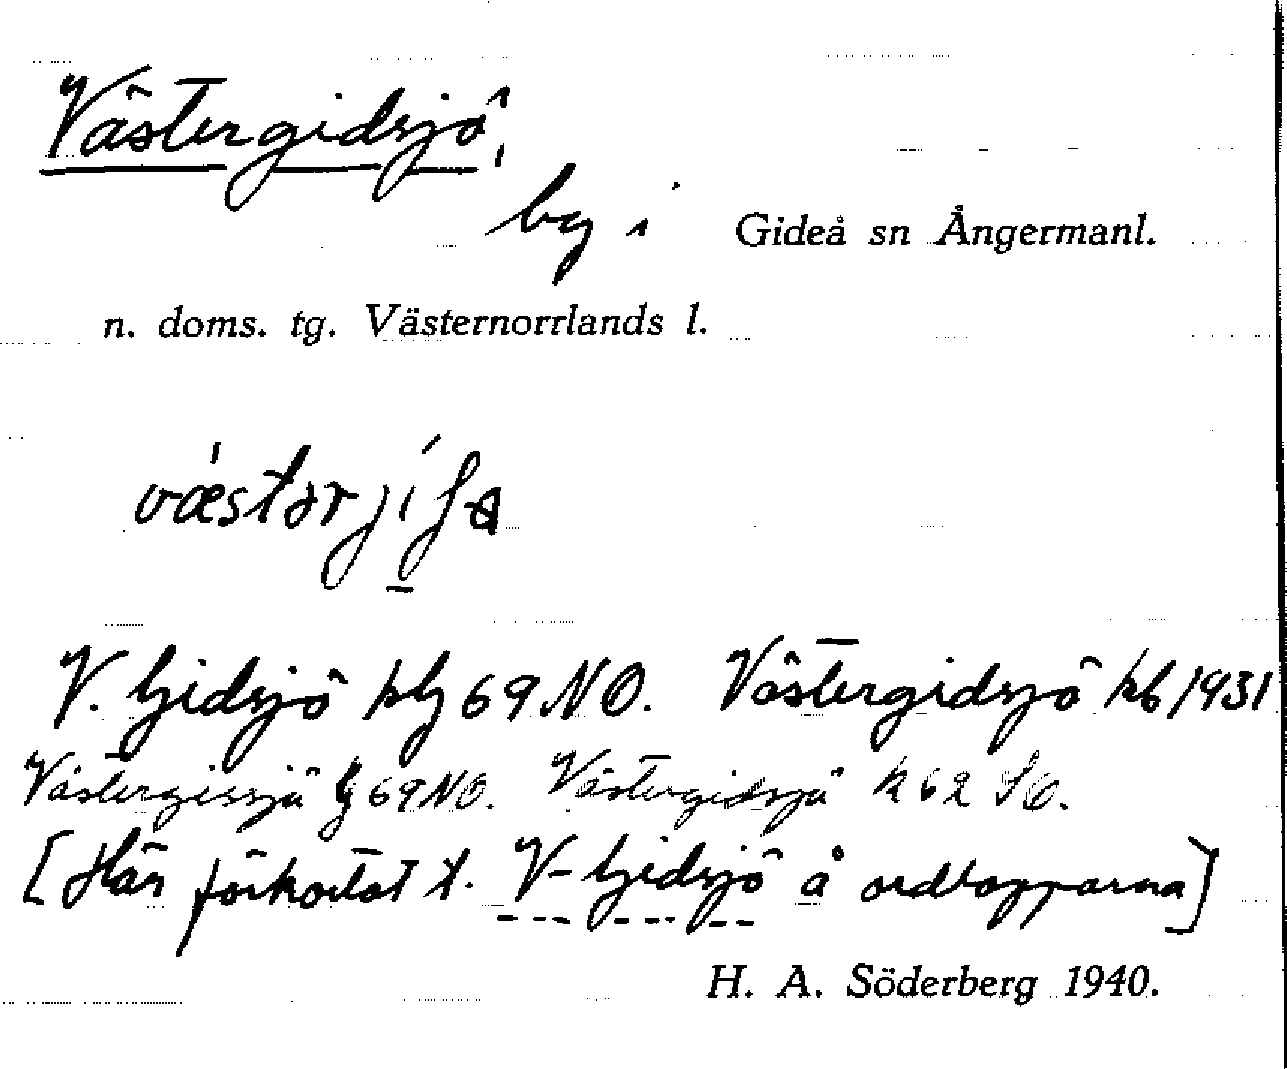 Västergidsjö,
by i Gideå sn Ångermanl.
n. doms. tg. Västernorrlands l.
V. Gidsjö 69 NO. Västergidsjö kb 1931
Västergissjö G 69 NO. Västergidsjö k 62 SO.
[Här förkortat t. V-Gidsjö å ordlapparna]
H. A. Söderberg 1940.